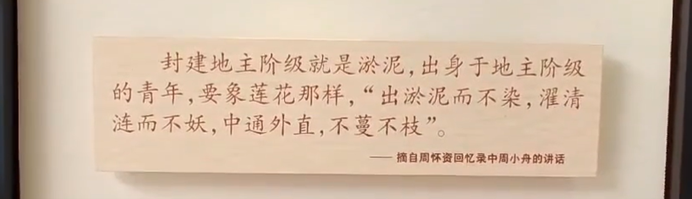 封建地主阶级就是淤泥，出身于地主阶级
的青年，要象莲花那样，“出淤泥而不染，濯清
涟而不妖，中通外直，不蔓不枝”。
—— 摘自周怀资回忆录中周小舟的讲话